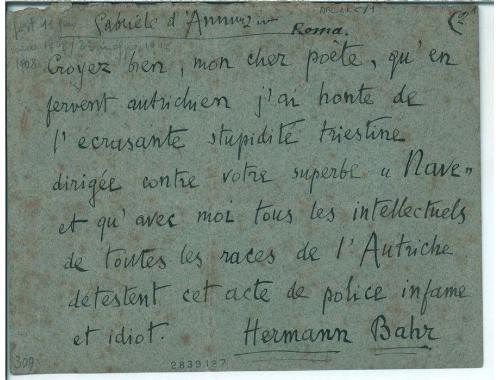 Gabriele d'Annunzio
Roma.
Croyez bien, mon cher poète, qu'en
fervent autrichien j'ai honte de
l'écrasante stupidité triestine
dirigée contre votre superbe « Nave »
et qu'avec moi tous les intellectuels
de toutes les races de l'Autriche
détestent cet acte de police infame
et idiot. Hermann Bahr
309 2839187